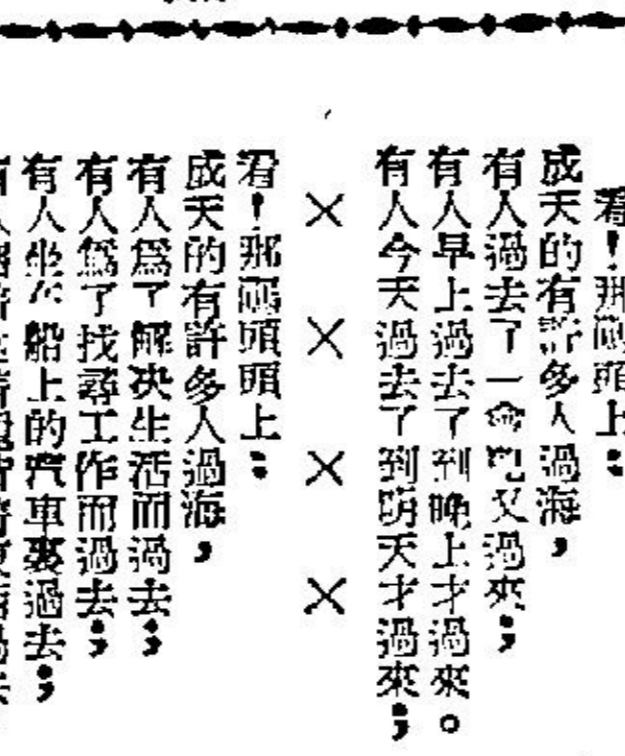 看！那碼頭上：
成天的有許多人過海，
有人過去了一會兒又過來；
有人早上過去了到晚上才過來。
有人今天過去了到明天才過來；
××××
看！那碼頭頭上：
成天的有許多人過海，
有人爲了解決生活而過去；
有人爲了找尋工作而過去；
有人坐在船上的汽車裏過去；